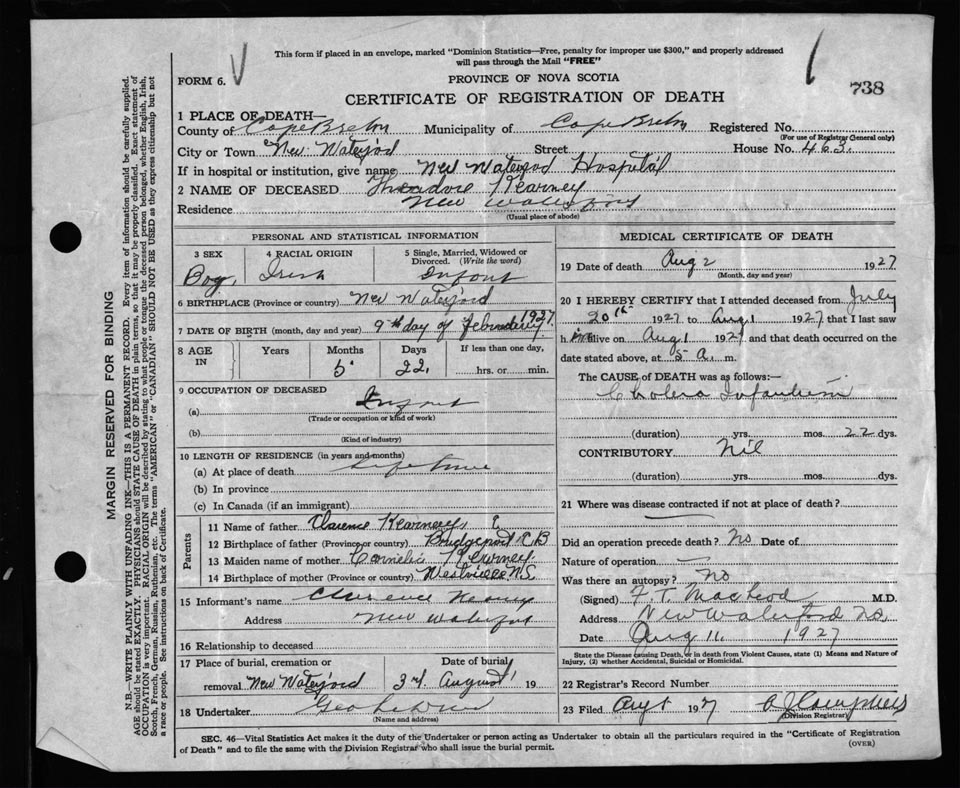 This form if placed in an envelope, marked "Dominion Statistics—Free, penalty for improper use $300," and properly addressed
will pass through the Mail "FREE"
FORM 6.
PROVINCE OF NOVA SCOTIA
738
CERTIFICATE OF REGISTRATION OF DEATH
1 PLACE OF DEATH—
County of Cape Breton Municipality of Cape Breton Registered No.
(For use of Registrar General only)
City or Town New Waterford Street House No. 463
If in hospital or institution, give name New Waterford Hospital
2 NAME OF DECEASED Theadore Kearney
Residence New Waterford
(Usual place of abode)
PERSONAL AND STATISTICAL INFORMATION
3 SEX 4 RACIAL ORIGIN 5 Single, Married, Widowed or
Divorced. (Write the word)
Boy. Irish Infant
6 BIRTHPLACE (Province or country) New Waterford
7 DATE OF BIRTH (month, day and year) 9th day of February 1927
8 AGE IN Years Months Days If less than one day,
5 22 hrs. or min.
9 OCCUPATION OF DECEASED
(a) Infant
(Trade or occupation or kind of work)
(b)
(Kind of industry)
10 LENGTH OF RESIDENCE (in years and months)
(a) At place of death Life time
(b) In province
(c) In Canada (if an immigrant)
Parents
11 Name of father Clarence Kearney
12 Birthplace of father (Province or country) Bridgeport C B
13 Maiden name of mother Cornelia Kearney
14 Birthplace of mother (Province or country) Westville N.S.
15 Informant's name Clarence Kearney
Address New Waterford
16 Relationship to deceased
17 Place of burial, cremation or Date of burial
removal New Waterford 3rd August 19
18 Undertaker Geo
(Name and address)
MEDICAL CERTIFICATE OF DEATH
19 Date of death Aug 2 1927
(Month, day and year)
20 I HEREBY CERTIFY that I attended deceased from July
20th 1927 to Aug 1 1927 that I last saw
him alive on Aug 1 1927 and that death occurred on the
date stated above, at 5 a. m.
The CAUSE OF DEATH was as follows:—
Cholera Infantum
(duration) yrs. mos. 22 dys.
CONTRIBUTORY Nil
(duration) yrs. mos. dys.
21 Where was disease contracted if not at place of death?
Did an operation precede death? No Date of
Nature of operation
Was there an autopsy? No
(Signed) F. T. MacLeod M.D.
Address New Waterford N.S.
Date Aug 11 1927
State the Disease causing Death, or in death from Violent Causes, state (1) Means and Nature of
Injury, (2) whether Accidental, Suicidal or Homicidal.
22 Registrar's Record Number
23 Filed Aug
(Division Registrar)
SEC. 46—Vital Statistics Act makes it the duty of the Undertaker or person acting as Undertaker to obtain all the particulars required in the "Certificate of Registration
of Death" and to file the same with the Division Registrar who shall issue the burial permit. (OVER)
MARGIN RESERVED FOR BINDING
N.B.—WRITE PLAINLY WITH UNFADING INK—THIS IS A PERMANENT RECORD. Every item of information should be carefully supplied.
AGE should be stated EXACTLY. PHYSICIANS should STATE CAUSE OF DEATH in plain terms, so that it may be properly classified. Exact statement of
OCCUPATION is very important. RACIAL ORIGIN will be described by stating to what people or tongue the deceased person belonged, whether English, Irish,
Scotch, French, German, Russian, Ruthenian, etc. The terms "AMERICAN" or "CANADIAN" SHOULD NOT BE USED as they express citizenship but not
a race or people. See instructions on back of Certificate.